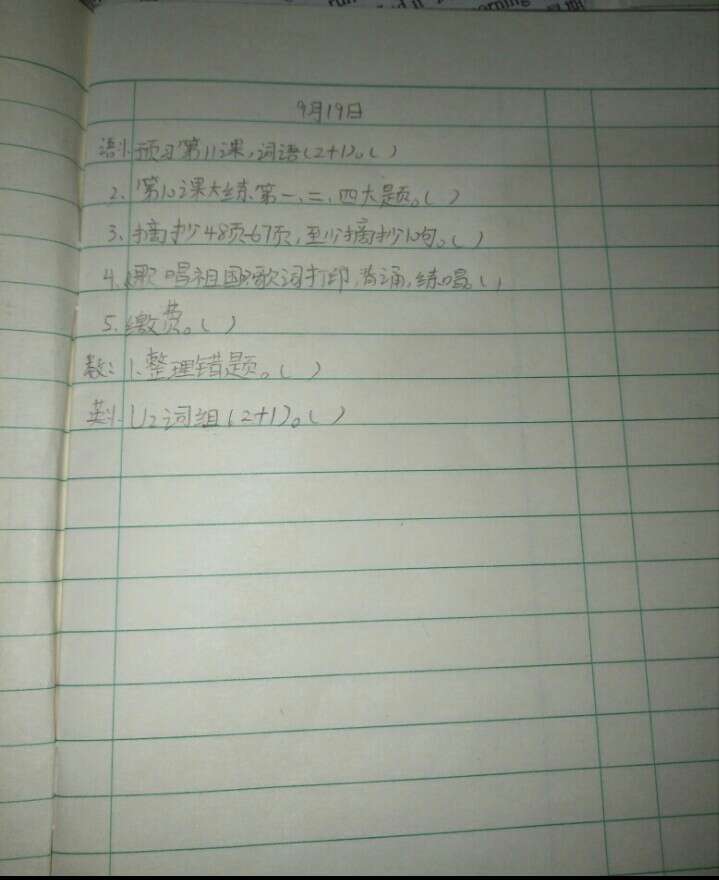 9月19日
语1.预习第11课,词语(2+1)。( )
2.第10课大练第一、二、四大题。( )
3.摘抄48页-67页,至少摘抄10句。( )
4.《歌唱祖国》歌词打印,背诵,练唱。( )
5.缴费。( )
数:1.整理错题。( )
英1.U2词组(2+1)。( )